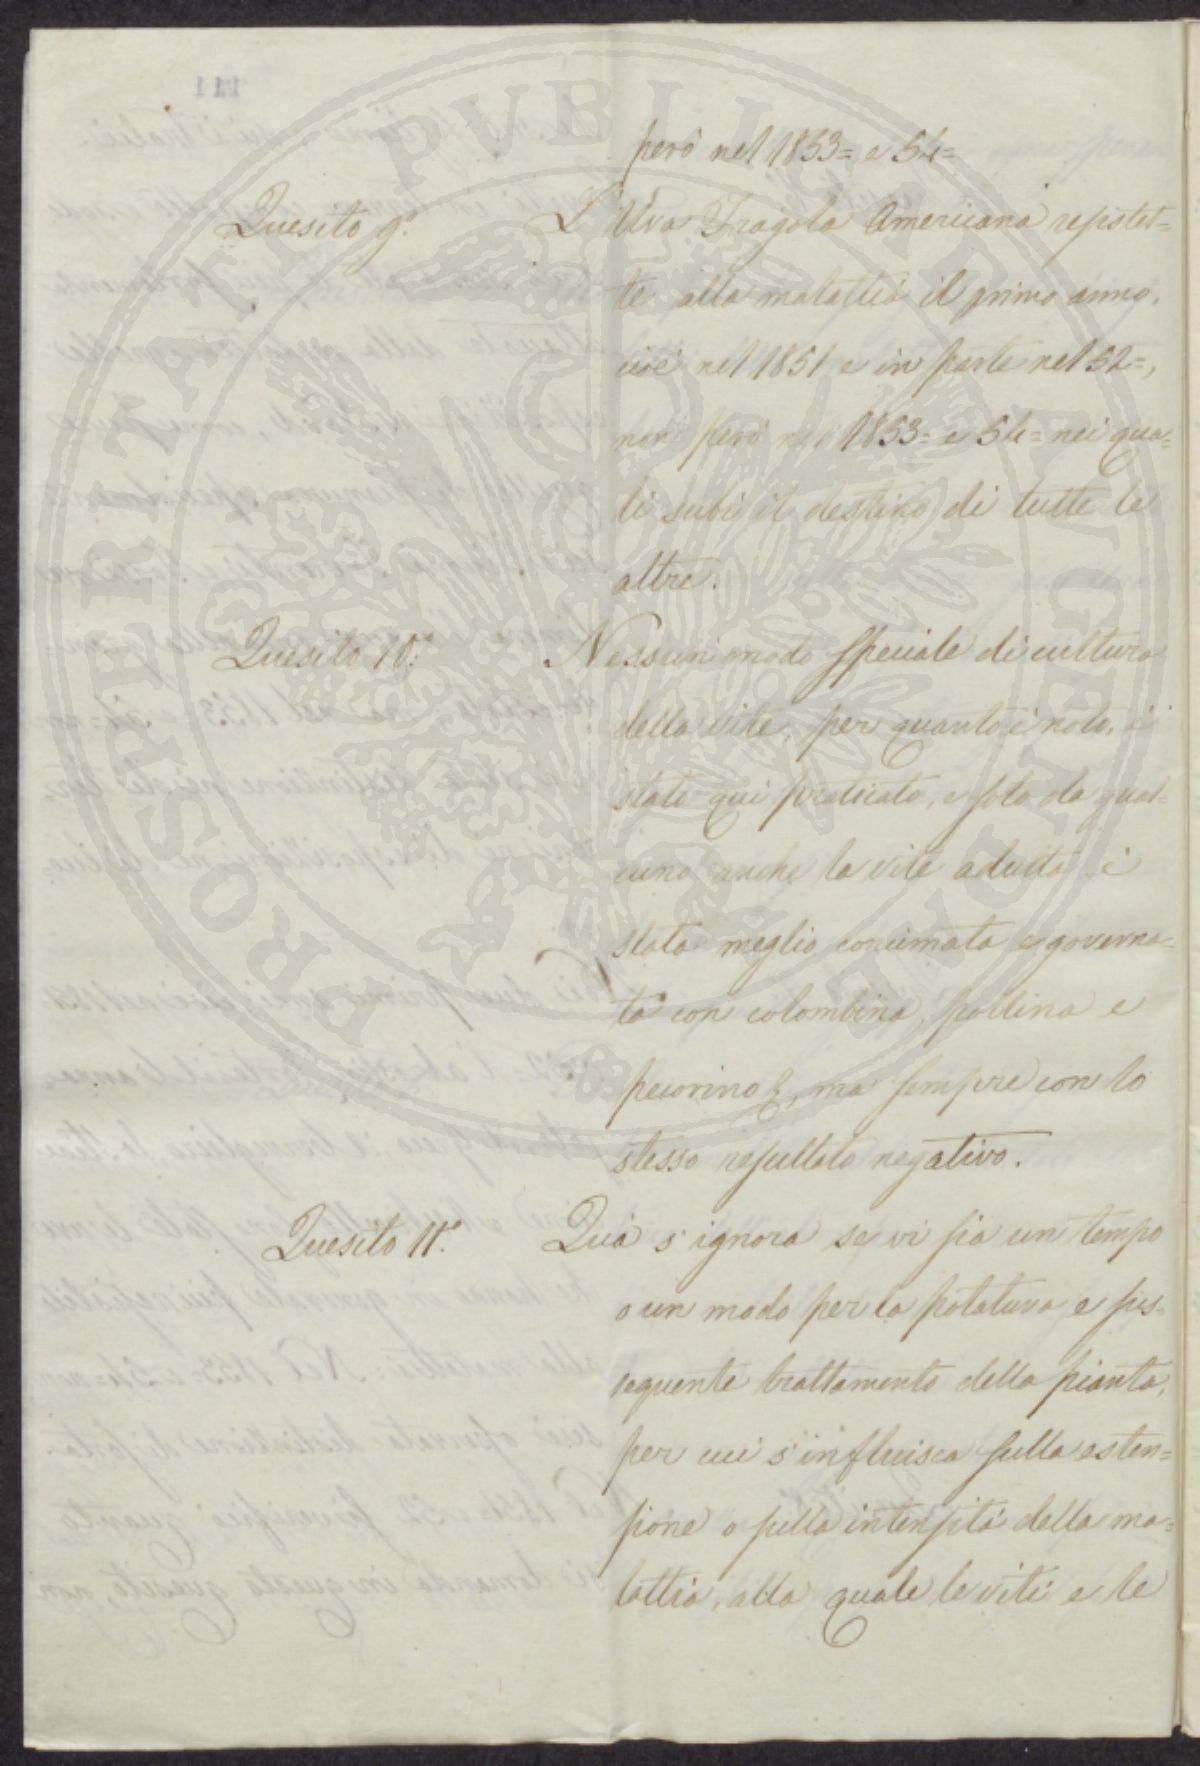 PROSPERITATI PVBLICAE AVGENDAE
però nel 1853= e 54=
Quesito 9.° L'Uva Fragola Americana resistet=
te alla malattia il primo anno,
cioè nel 1851 e in parte nel 52=,
non però nel 1853= e 54= nei qua=
li subì il destino di tutte le
altre.
Quesito 10.° Nessun modo speciale di cultura
della vite, per quanto è noto, è
stato qui praticato, e solo da qual=
cuno anche la vite adulta è
stata meglio concimata e governa=
ta con colombina, pollina e
pecorino &, ma sempre con lo
stesso resultato negativo.
Quesito 11.° Quà s'ignora se vi sia un tempo
o un modo per la potatura e sus=
seguente trattamento della pianta,
per cui s'influisca sulla esten=
sione o sulla intensità della ma=
lattia, alla quale le viti e le